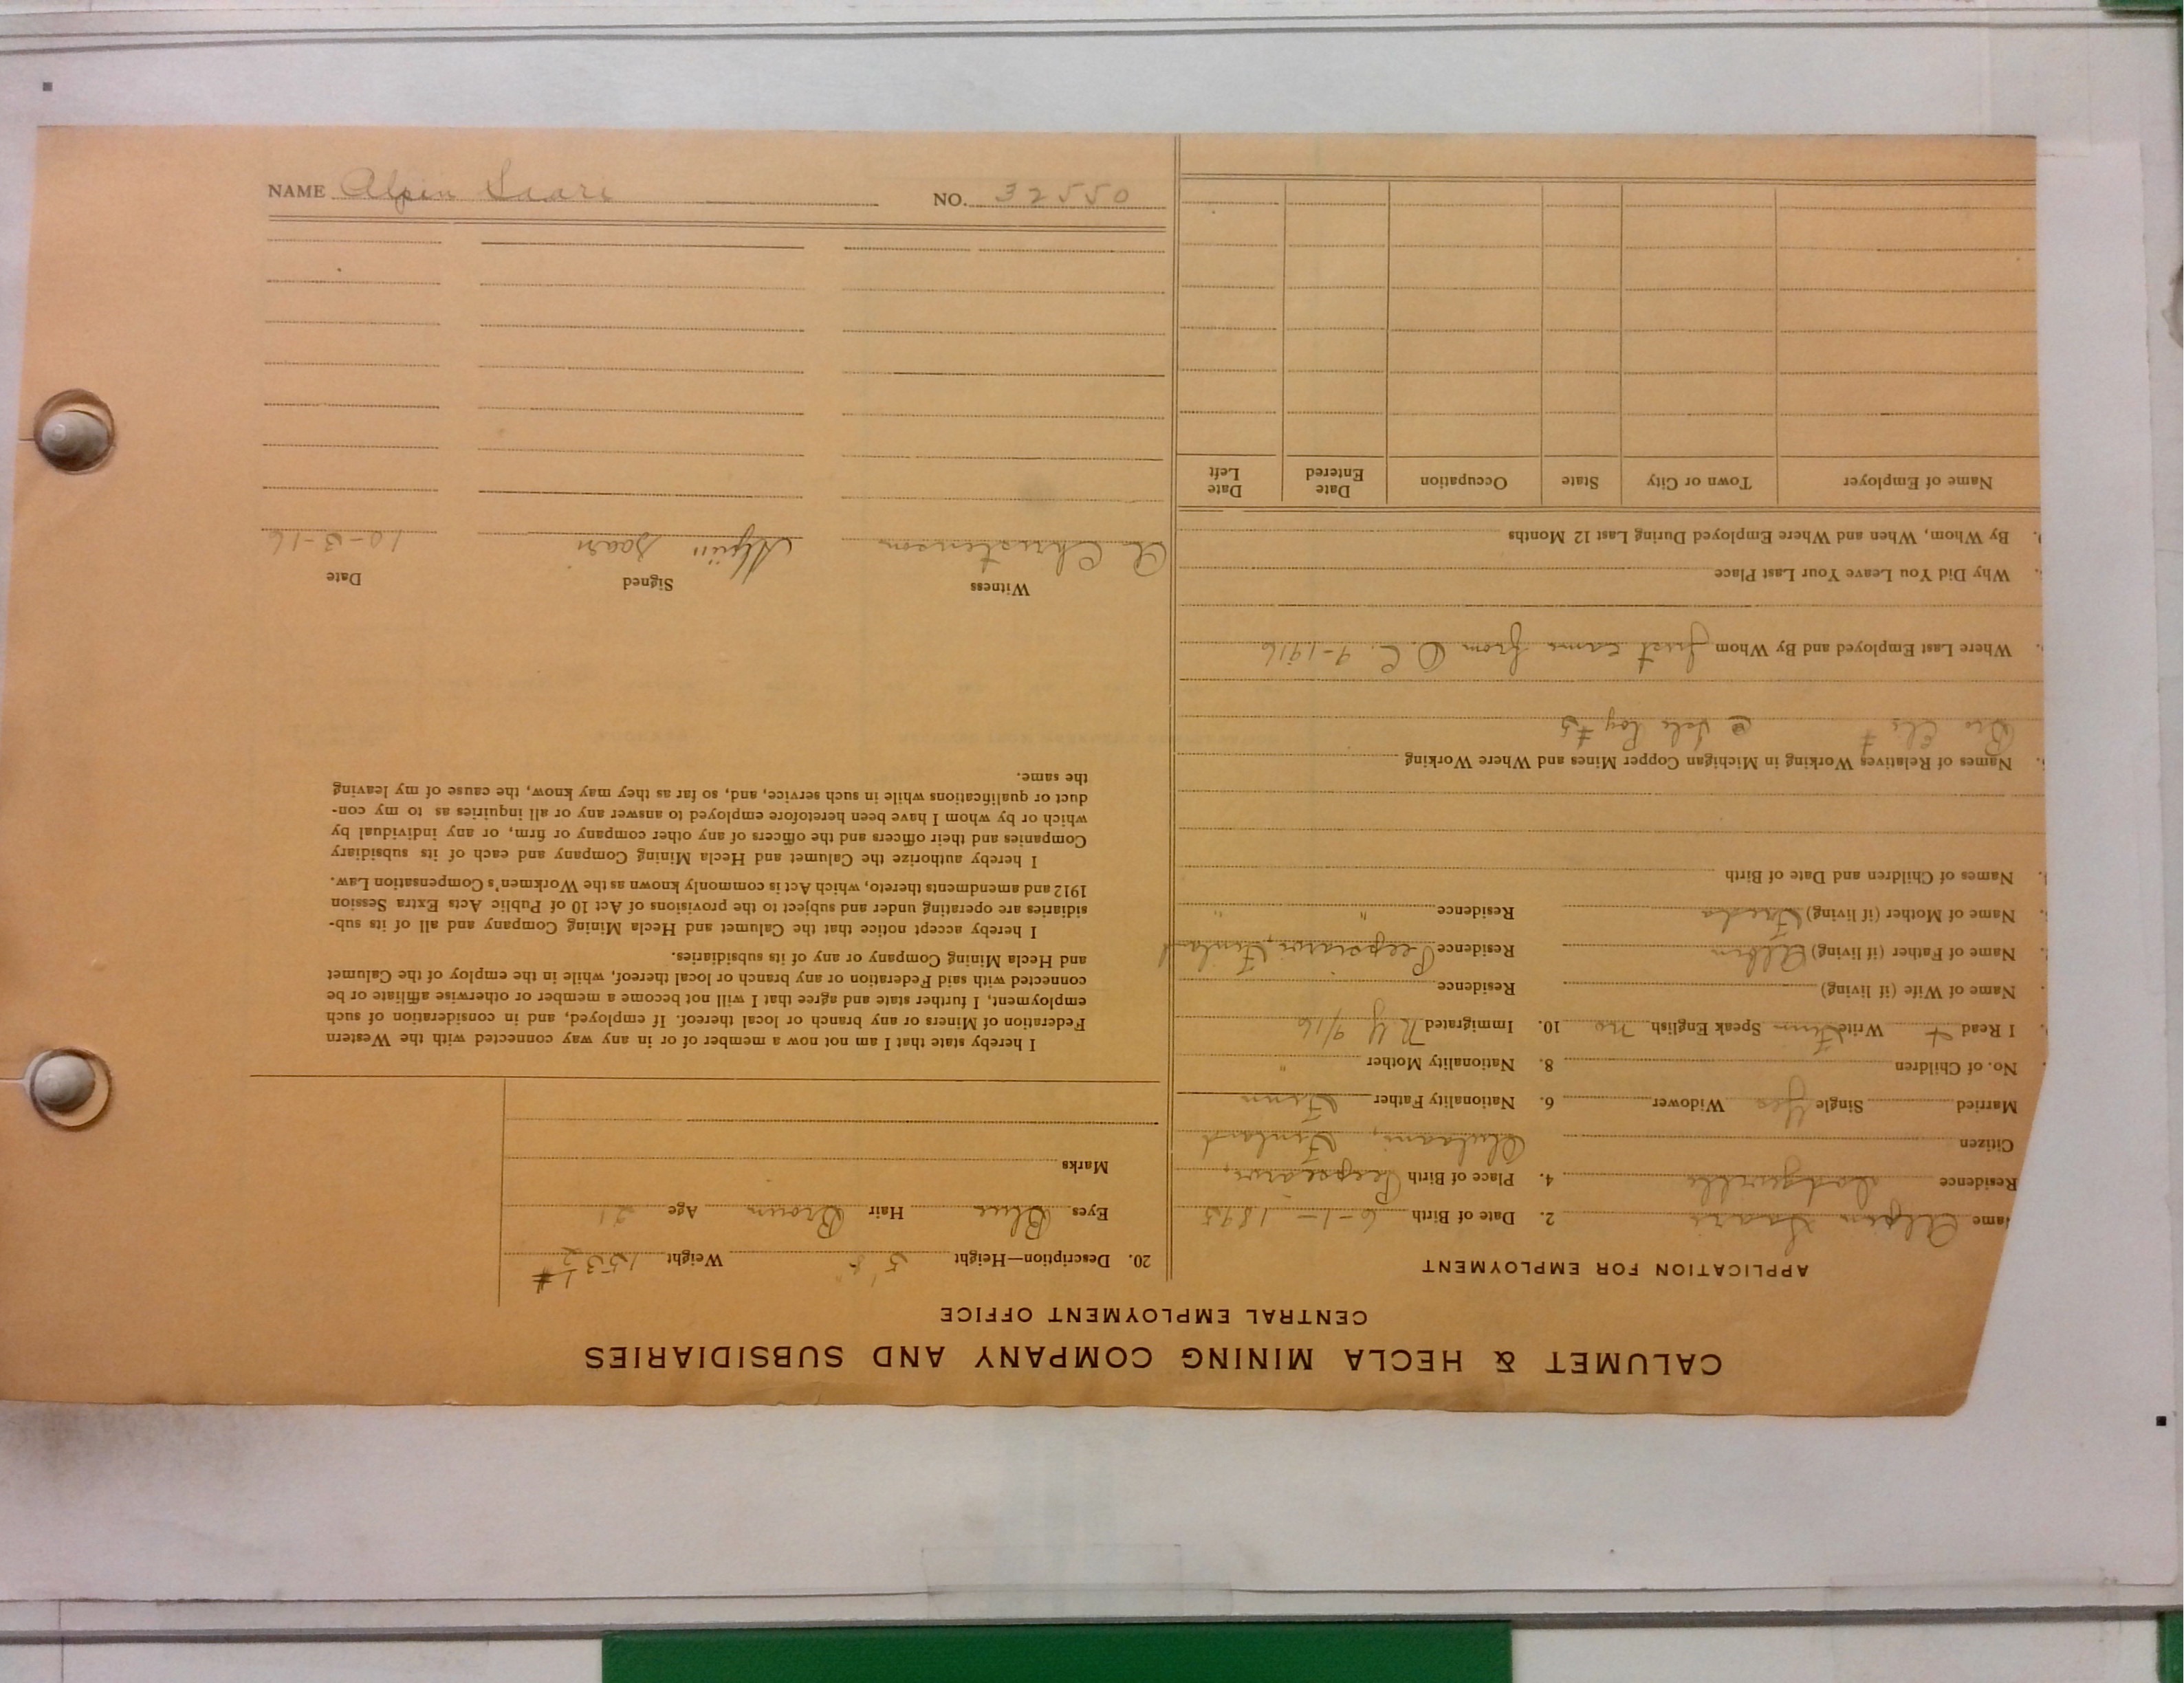 CALUMET & HECLA MINING COMPANY AND SUBSIDIARIES
CENTRAL EMPLOYMENT OFFICE
APPLICATION FOR EMPLOYMENT
ame Alpin Saari 2. Date of Birth 6-1-1895
Residence Dodgeville 4. Place of Birth
Citizen Finland
Married Single Yes Widower 6. Nationality Father Finn
No. of Children 8. Nationality Mother "
I Read + Write Finn Speak English no 10. Immigrated N Y 9/16
Name of Wife (if living) Residence
Name of Father (if living) Albin Residence Finland
Name of Mother (if living) Residence " "
Names of Children and Date of Birth
Names of Relatives Working in Michigan Copper Mines and Where Working
Bro Chs @ Isle Roy #5
Where Last Employed and By Whom just came from O. C. 9-1916
Why Did You Leave Your Last Place
By Whom, When and Where Employed During Last 12 Months
Name of Employer Town or City State Occupation Date Entered Date Left
20. Description—Height 5' 8" Weight 153 1/2 #
Eyes Blue Hair Brown Age 21
Marks
I hereby state that I am not now a member of or in any way connected with the Western
Federation of Miners or any branch or local thereof. If employed, and in consideration of such
employment, I further state and agree that I will not become a member or otherwise affiliate or be
connected with said Federation or any branch or local thereof, while in the employ of the Calumet
and Hecla Mining Company or any of its subsidiaries.
I hereby accept notice that the Calumet and Hecla Mining Company and all of its sub-
sidiaries are operating under and subject to the provisions of Act 10 of Public Acts Extra Session
1912 and amendments thereto, which Act is commonly known as the Workmen's Compensation Law.
I hereby authorize the Calumet and Hecla Mining Company and each of its subsidiary
Companies and their officers and the officers of any other company or firm, or any individual by
which or by whom I have been heretofore employed to answer any or all inquiries as to my con-
duct or qualifications while in such service, and, so far as they may know, the cause of my leaving
the same.
Witness Signed Date
A Christenson Alpiin Saari 10-3-16
NAME Alpin Saari NO. 32550